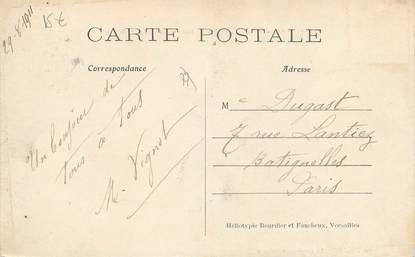 29-8-1911
15€
CARTE POSTALE
Correspondance
Adresse
Un bonjour de
tous à tous
M. Vignot
M Dugast
7 rue Lantiez
Batignolles
Paris
Héliotypie Bourdier et Faucheux, Versailles